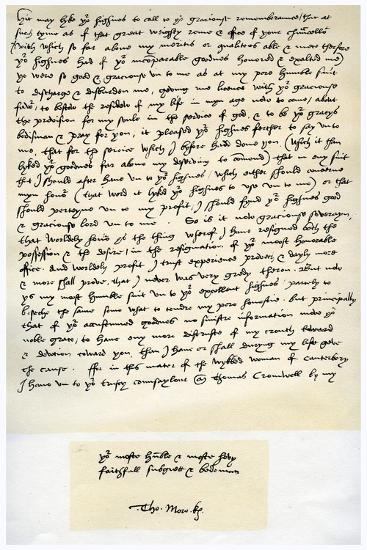 It may lyke yor highnes to call to yor graciouse remembraunce, that at
such tyme as of that great weighty rome & office of your chauncellor
(with which so far above my merites or qualitees able & mete therfore
yor highnes had of yor incomparable goodnes honored & exalted me)
ye were so good & graciouse un to me as at my pore humble suit
to discharge & disburden me, geving me licence with yor graciouse
favor, to bestow the residew of my life in myn age now to come, about
the provision for my soule in the service of god, & to be yor gracys
bedisman & pray for you, it pleased yor highnes ferther to say un to
me, that for the service which I byfore had done you (which it than
lyked yor goodnes far above my deserving to comend) that in eny suit
that I should after have un to yor highnes, which either should concerne
myn honor (that word it lyked yor highnes to use un to me) or that
should perteyne un to my profit, I should fynd yor highnes good
& graciouse lord un to me. So is it now graciouse soverayn,
that worldely honor ys the thing wherof I have resigned both the
possession & the desire, in the resignation of yor moost honorable
office. And worldely profit, I trust experience proveth, & dayly more
& more shall prove, that I never was very gredy theron. But now
ys my most humble suit un to yor excellent highnes, partely to
biseche the same some what to tendre my pore honestie, but principally
that of yor accustumed goodnes no sinistre information move yor
noble grace, to have eny more distruste of my trouth
& devotion toward you than I have or shall duryng my life geve
the cause. ffor in this mater of the wykked woman of Canterbery
I have un to yor trusty counsaylour Thomas Cromwell by my
yor moste humble & moste hevy
faithfull subgiett & bedeman
Tho. More. kg.